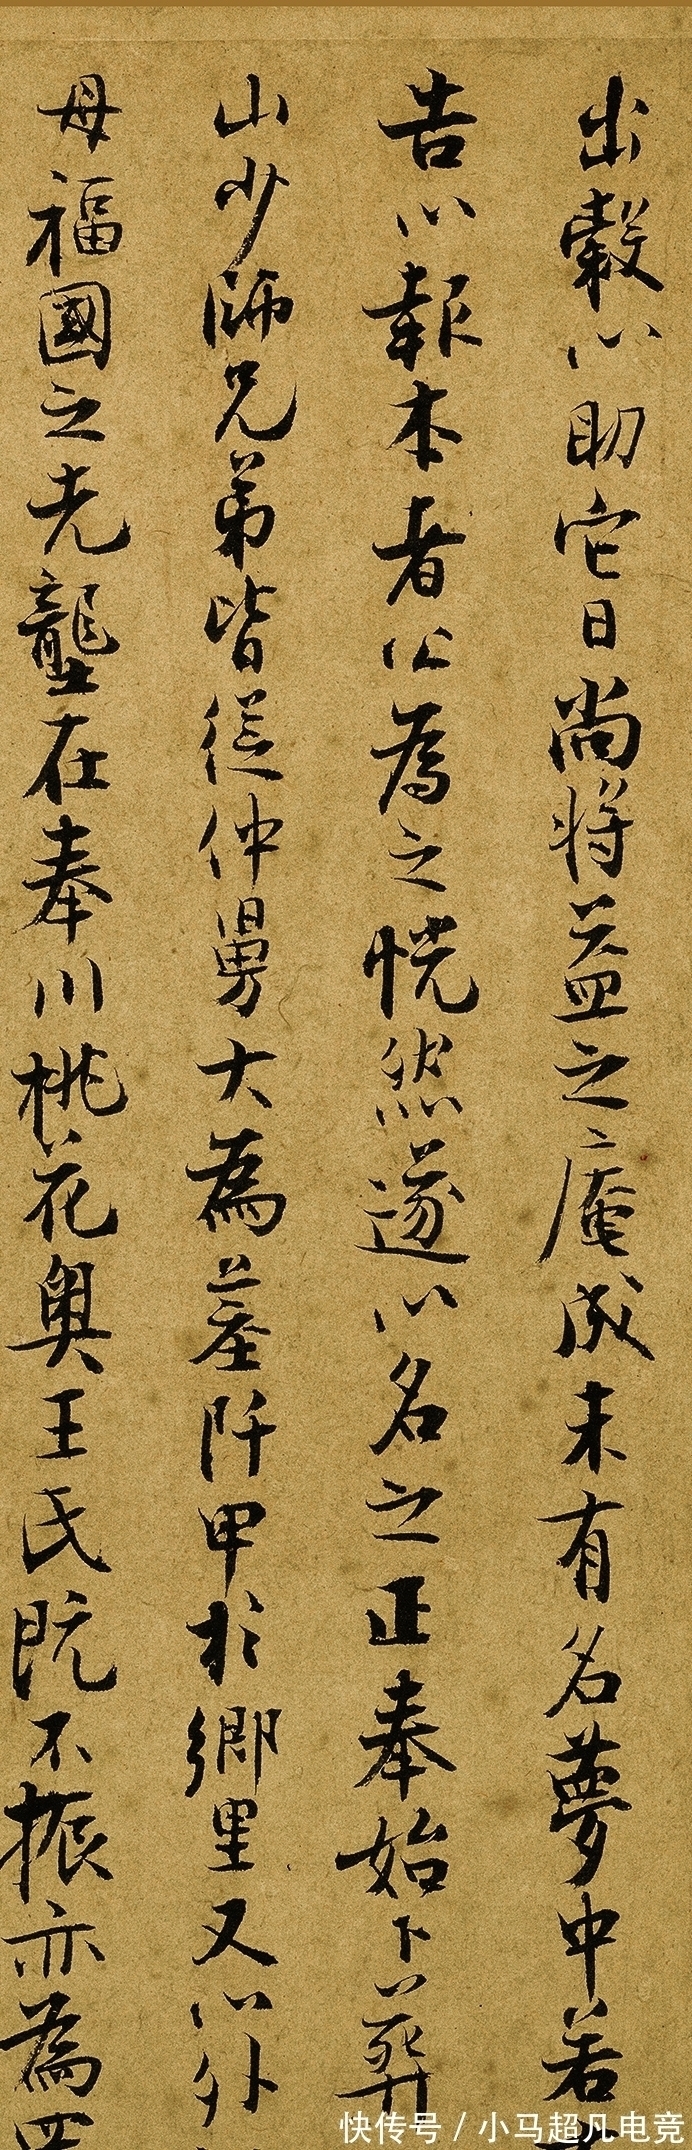 出穀以助它日尚將益之庵成未有名夢中若
告以報本者公為之恍然遂以名之正奉始卜葬
山少師兄弟皆從仲舅大為墓阡甲於鄉里又以外
母福國之先壟在奉川桃花奧王氏既不振亦為四
快传号 / 小马超凡电竞